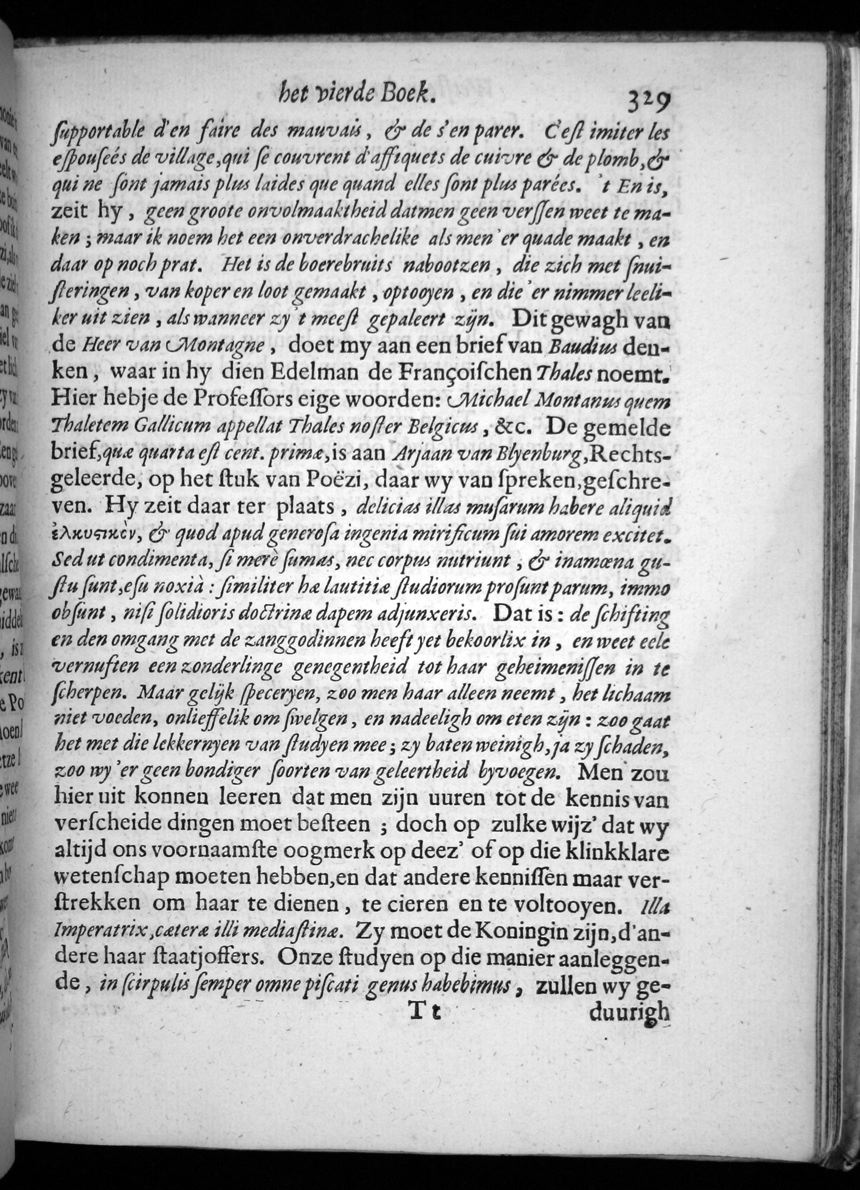 het vierde Boek. 329
ſupportable d'en faire des mauvais, & de s'en parer. C'eſt imiter les
eſpouſeés de village, qui ſe couvrent d'affiquets de cuivre & de plomb, &
qui ne ſont jamais plus laides que quand elles ſont plus parées. 't En is,
zeit hy, geen groote onvolmaaktheid datmen geen verſſen weet te ma-
ken; maar ik noem het een onverdrachelike als men 'er quade maakt, en
daar op noch prat. Het is de boerebruits nabootzen, die zich met ſnui-
ſteringen, van koper en loot gemaakt, optooyen, en die 'er nimmer leeli-
ker uit zien, als wanneer zy 't meeſt gepaleert zijn. Dit gewagh van
de Heer van Montagne, doet my aan een brief van Baudius den-
ken, waar in hy dien Edelman de Françoiſchen Thales noemt.
Hier hebje de Profeſſors eige woorden: Michael Montanus quem
Thaletem Gallicum appellat Thales noſter Belgicus, &c. De gemelde
brief, quæ quarta eſt cent. primæ, is aan Arjaan van Blyenburg, Rechts-
geleerde, op het ſtuk van Poëzi, daar wy van ſpreken, geſchre-
ven. Hy zeit daar ter plaats, delicias illas muſarum habere aliquid
ἑλκυςικὲν, & quod apud generoſa ingenia mirificum ſui amorem excitet.
Sed ut condimenta, ſi merè ſumas, nec corpus nutriunt, & inamœna gu-
ſtu ſunt, eſu noxià: ſimiliter hæ lautitiæ ſtudiorum proſunt parum, immo
obſunt, niſi ſolidioris doctrinæ dapem adjunxeris. Dat is: de ſchifting
en den omgang met de zanggodinnen heeft yet bekoorlix in, en weet eele
vernuften een zonderlinge genegentheid tot haar geheimeniſſen in te
ſcherpen. Maar gelijk ſpeceryen, zoo men haar alleen neemt, het lichaam
niet voeden, onlieffelik om ſwelgen, en nadeeligh om eten zijn: zoo gaat
het met die lekkernyen van ſtudyen mee; zy baten weinigh, ja zy ſchaden,
zoo wy 'er geen bondiger ſoorten van geleertheid byvoegen. Men zou
hier uit konnen leeren dat men zijn uuren tot de kennis van
verſcheide dingen moet beſteen; doch op zulke wijz' dat wy
altijd ons voornaamſte oogmerk op deez' of op die klinkklare
wetenſchap moeten hebben, en dat andere kenniſſen maar ver-
ſtrekken om haar te dienen, te cieren en te voltooyen. Illa
Imperatrix, cæteræ illi mediaſtinæ. Zy moet de Koningin zijn, d'an-
dere haar ſtaatjoffers. Onze ſtudyen op die manier aanleggen-
de, in ſcirpulis ſemper omne piſcati genus habebimus, zullen wy ge-
T t duurigh